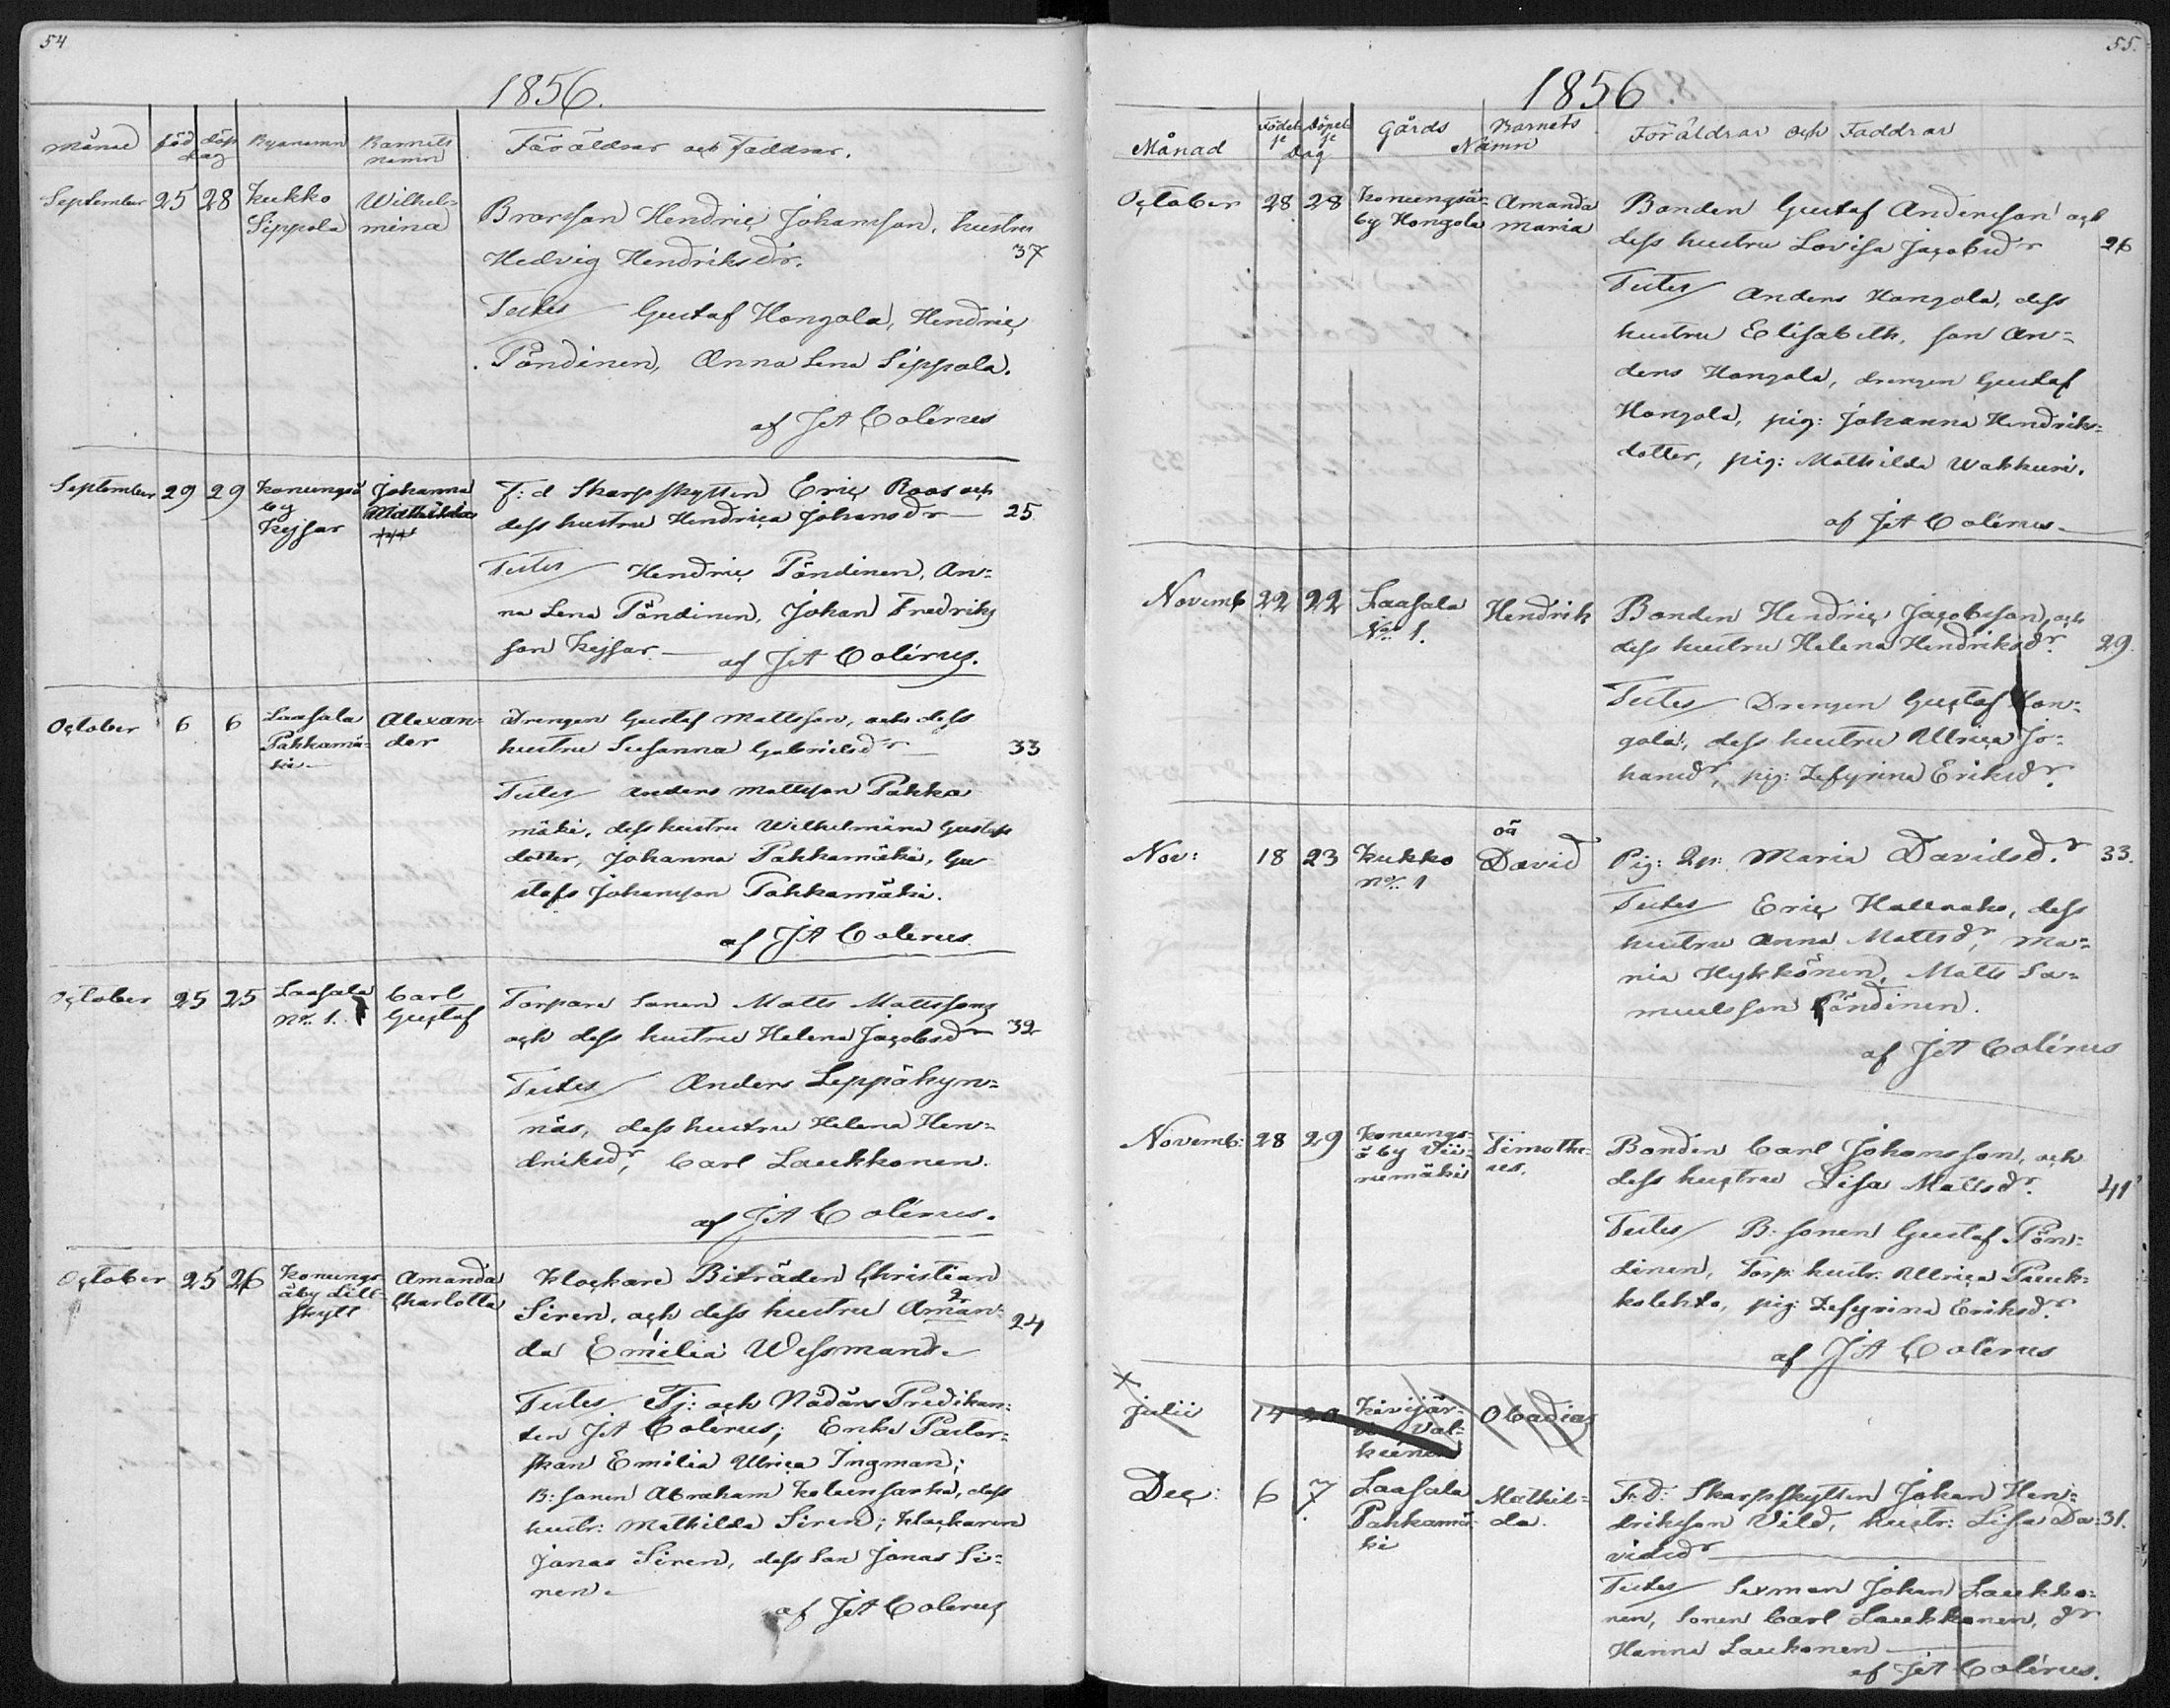 54
1856.
Månad född döpt dag Byanamn Barnets namn Föräldrar och Faddrar.
September 25 28 Kukko Sippola Wilhel=
mina
Hendric Johansson, hustru
Hedvig Hendriksdr. 37
Testes Gustaf Hongola, Hendric
Pöndinen, Anna Lena Sippola.
af JA Colérus
September 29 29 Konungsö by Keijsar Johanna Mathilda
F:d Skarpskytten Eric Roos och
dess hustru Hendrica Johansdr 25
Testes Hendric Pöndinen, An=
na Lena Pöndinen, Johan Fredriks
son Keijsar af JA Colérus.
October 6 6 Laasala Pahkamä=
ki Alexan=
der
Drengen Gustaf Mattsson, och dess
hustru Susanna Gabrielsdr 33
Testes Anders Mattsson Pahka
mäki, dess hustru Wilhelmina Gustafs
dotter, Johanna Pahkamäki, Gu
stafs Johansson Pahkamäki.
af JA Colerus
October 25 25 Laasala No. 1. Carl Gustaf
Torpare Sonen Matts Mattsson
och dess hustru Helena Jacobsdr 32
Testes Anders Leppähyn=
näs, dess hustru Helena Hen=
driksdr, Carl Laukkonen.
af JA Colérus.
October 25 26 Konungs
åby Lill
Skytt Amanda Charlotta
Klockare Biträden Christian
Siren, och dess hustru Aman= 24
da Emilia Wessman.
Testes Tj: och Nådårs Predikan=
ten JA Colérus; Enke Pastor=
skan Emilia Ulrica Ingman;
B: sonen Abraham dess
hustr: Mathilda Siren; Klockaren
Jonas Siren, dess Son Jonas Si=
ren.
af JA Colerus
55.
1856
Månad Födel
se Döpel
se Dag Gårds Barnets Namn Föräldrar och Faddrar
October 28 28 Konungså=
by Hongola Amanda Maria
Bonden Gustaf Andersson och
dess hustru Lovisa Jacobsdr 26
Testes Anders Hongola, dess
hustru Elisabeth, son An=
ders Hongola, drengen Gustaf
Hongola, pig: Johanna Hendriks=
dotter, pig: Mathilda Wakkuri.
af JA Colérus
Novemb 22 22 Laasala No. 1. Hendrik
Bonden Hendric Jacobsson, och
dess hustru Helena Hendriksdr. 29.
Testes Drengen Gustaf Hon=
gola, dess hustru Ulrica Jo=
hansdr, pig: Zefyrina Eriksdr.
Nov: 18 23 Kukko No. 1 oä
David
Pig: Qp: Maria Davidsdr. 33.
Testes Eric Hallnaho, dess
hustru Anna Mattsdr, Ma=
ria Hykkönen, Matts Sa=
muelsson Pöndinen.
af JA Colérus
Novemb: 28 29 Konungs=
åby Vii=
rumäki Timothe=
us.
Bonden Carl Johansson, och
dess hustru Lisa Mattsdr. 41
Testes B: sonen Gustaf Pön=
dinen, Torp: hustr: Ulrica Pauk=
kolehto, pig: Zefyrina Eriksdr.
af JA Colerus
x
Julii 14 20 Kivijär=
vi Val=
keinen Obadias
Dec: 6 7 Laasala Pahkamä=
ki Mathil=
da.
F:d: Skarpskytten Johan Hen=
driksson Vild, hustr: Lisa Da= 31.
vidsdr
Testes Sexman Johan Laukko=
nen, Sonen Carl Laukkonen, dr
Hanna Laukonen
af JA Colérus.